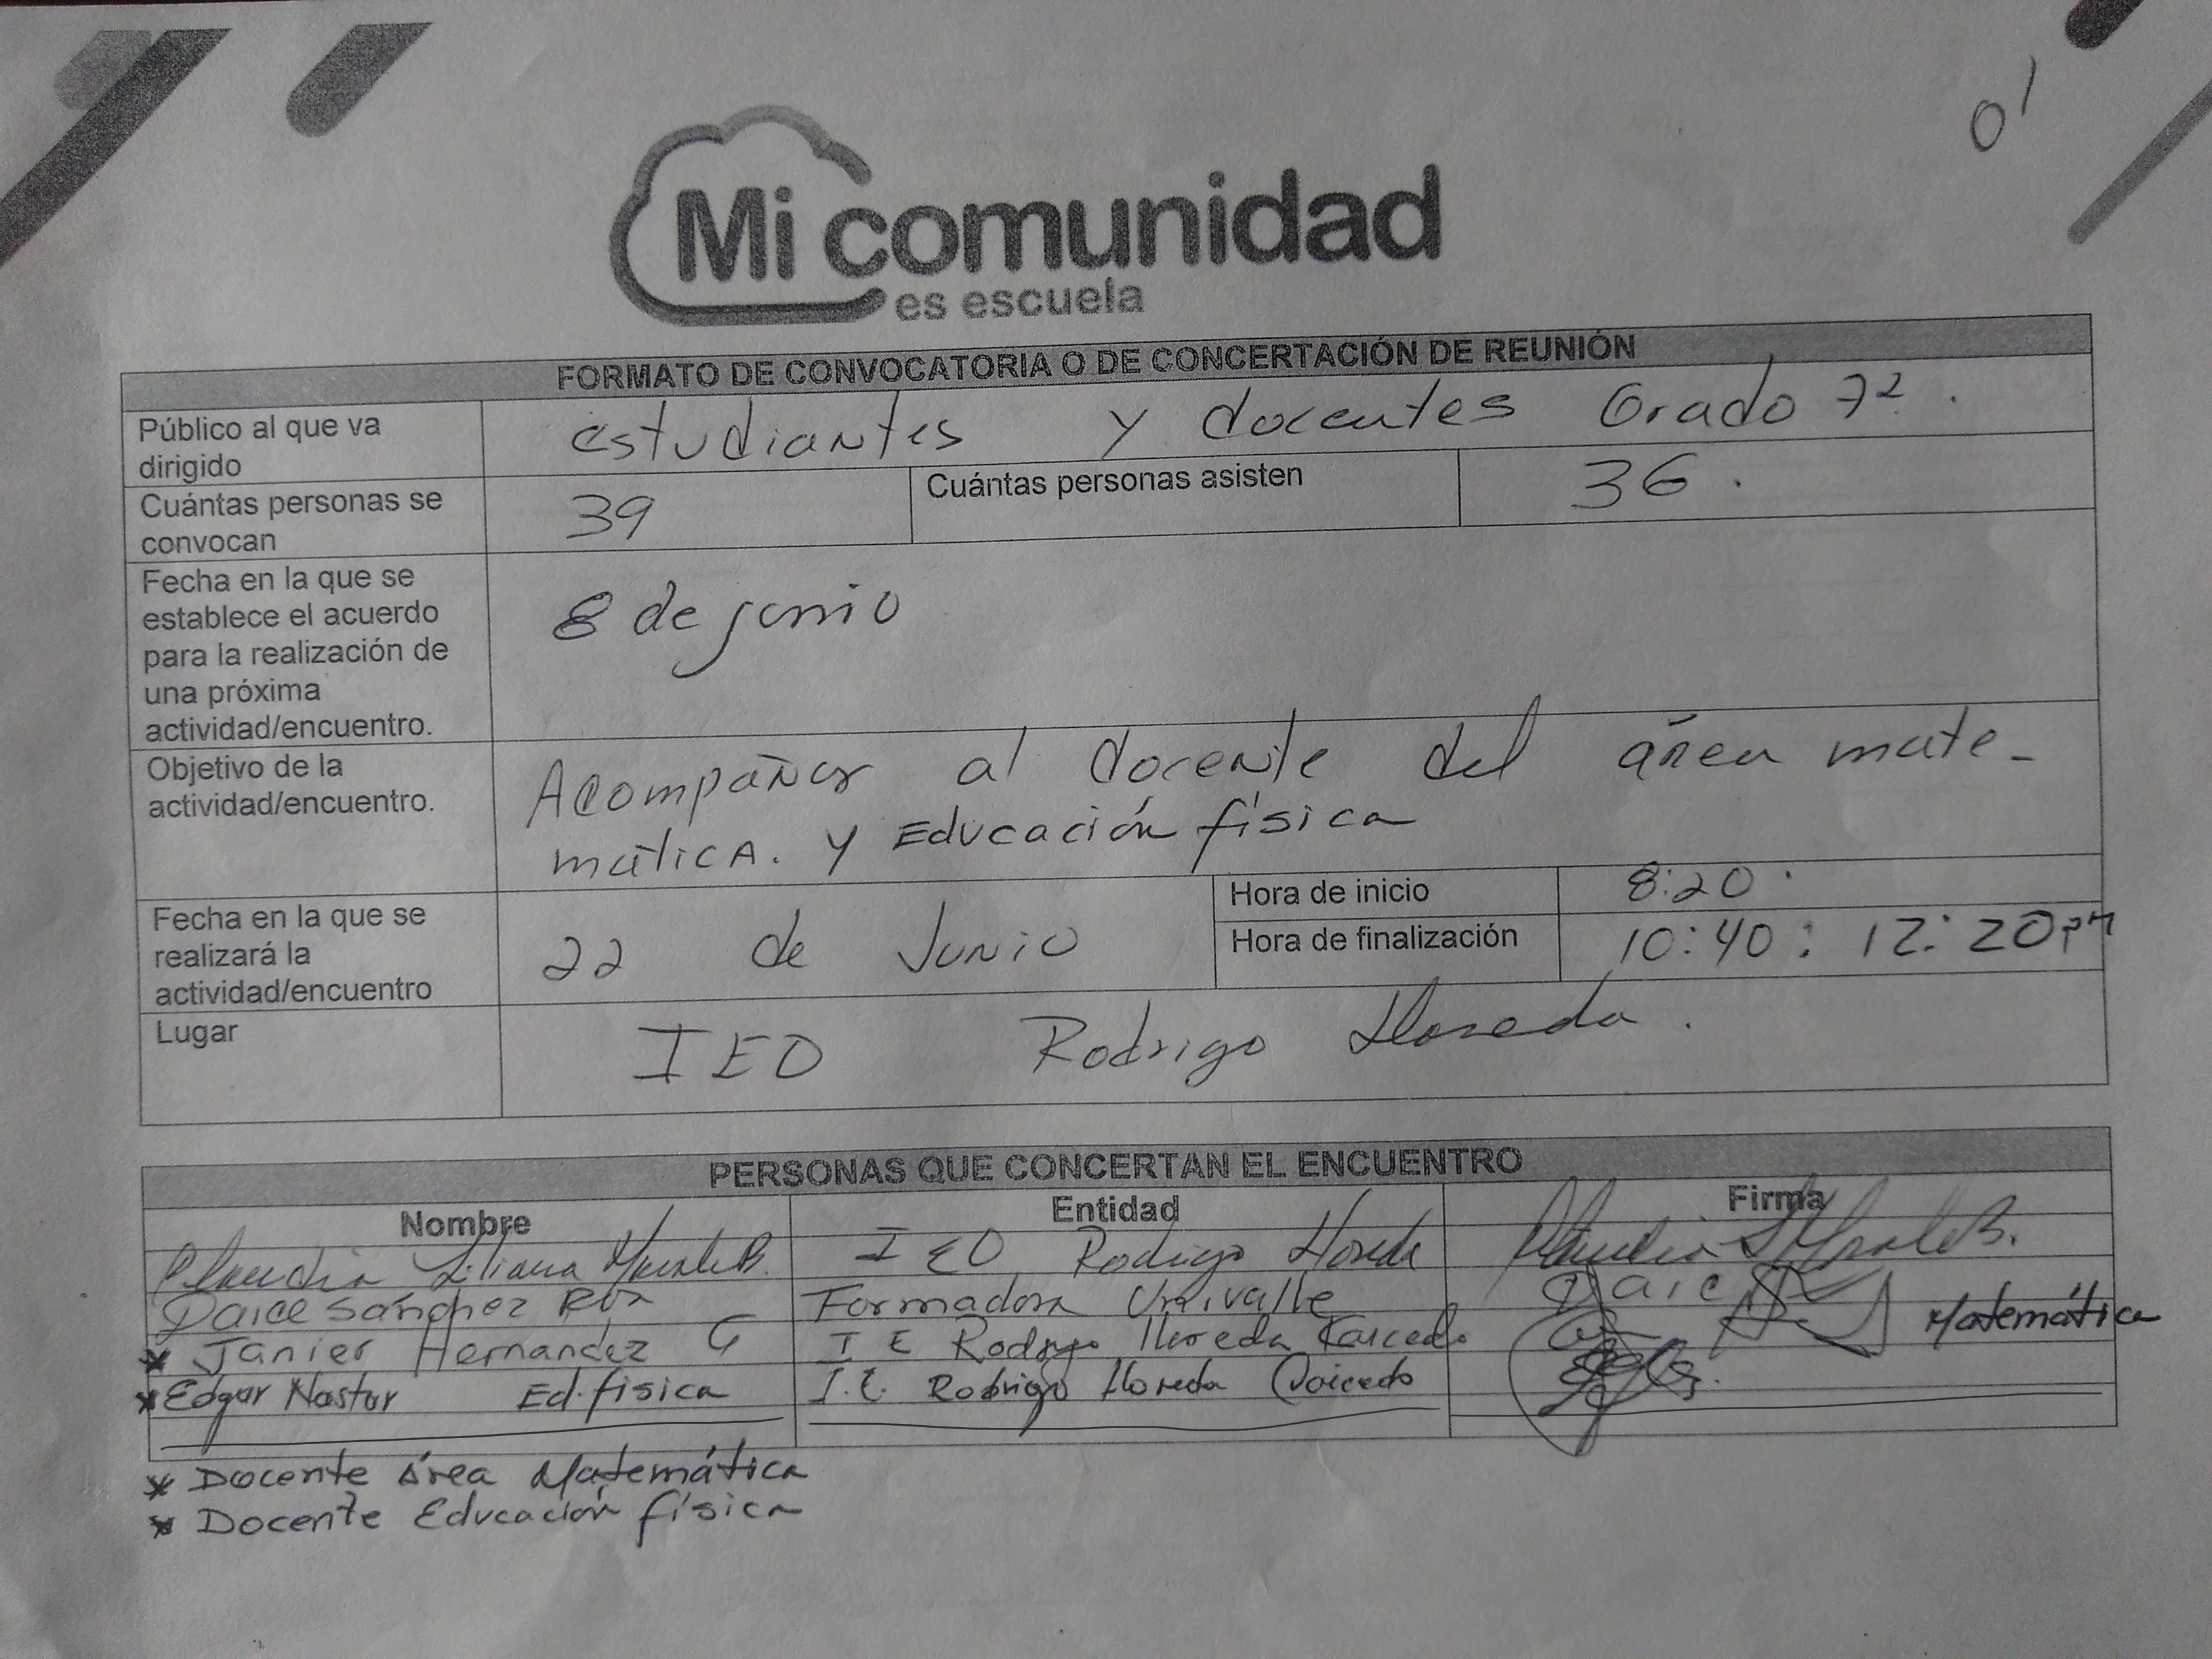 01
Mi comunidad
es escuela
FORMATO DE CONVOCATORIA O DE CONCERTACIÓN DE REUNIÓN
Público al que va dirigido
estudiantes y docentes Grado 7º.
Cuántas personas se convocan
39
Cuántas personas asisten
36.
Fecha en la que se
establece el acuerdo
para la realización de
una próxima
actividad/encuentro.
8 de junio
Objetivo de la
actividad/encuentro.
Acompañar al docente del área mate-
mática. y Educación física
Fecha en la que se
realizará la
actividad/encuentro
22 de Junio
Hora de inicio
8:20
Hora de finalización
10:40 : 12:20pm
Lugar
IEO Rodrigo Lloreda.
PERSONAS QUE CONCERTAN EL ENCUENTRO
Nombre Entidad Firma
Claudia Liliana IEO Rodrigo
Daice Sánchez Formadora Univalle Daice
* Janier Hernandez G I E Rodrigo lloreda Caicedo Matemática
* Edgar Nastar Ed. física I.E. Rodrigo lloreda Caicedo
* Docente Área Matemática
* Docente Educación física